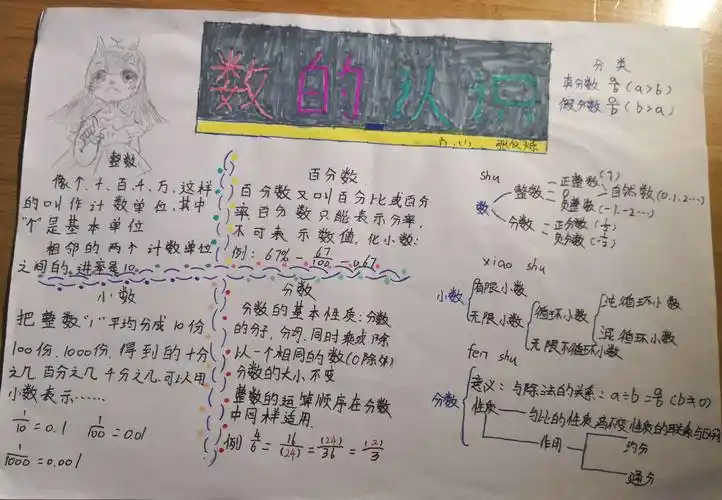 数的认识
六.(1)
分类
真分数 a/b (a>b)
假分数 a/b (b>a)
整数
像个、十、百、千、万,这样
的叫作计数单位,其中
"个"是基本单位
相邻的两个计数单位
之间的进率是10
百分数
百分数又叫百分比或百分
率百分数只能表示分率,
不可表示数值,化小数:
例: 67% = 67/100 = 0.67
小数
把整数"1"平均分成10份
100份.1000份.得到的十分
之几百分之几千分之几可以用
小数表示……
1/10 = 0.1 1/100 = 0.01
1/1000 = 0.001
分数
分数的基本性质:分数
的分子,分母,同时乘或除
以一个相同的数(0除外)
分数的大小不变
整数的运算顺序在分数
中同样适用.
例 4/6 = 16/(24) = (24)/36 = (2)/3
shu
数
整数
正整数(1)
0
自然数(0.1.2…)
负整数(-1.-2…)
分数
正分数(1/2)
负分数(-1/2)
xiao shu
小数
有限小数
无限小数
循环小数
纯循环小数
混循环小数
无限不循环小数
fen shu
分数
意义:与除法的关系:a÷b=a/b(b≠0)
性质
与比的性质,商不变性质的联系与区别
作用
约分
通分